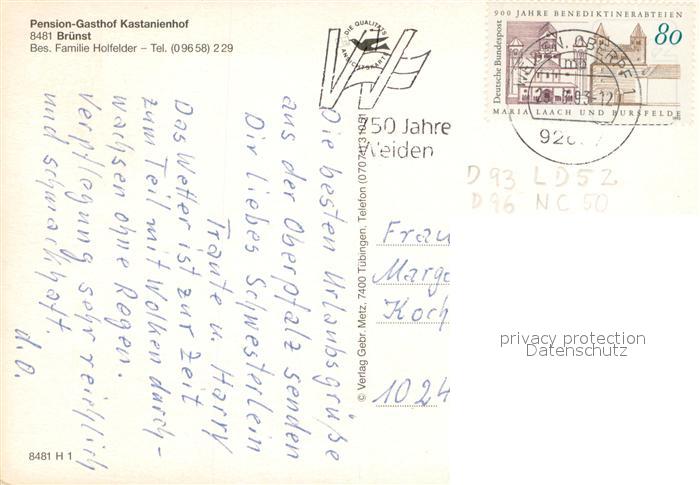 Pension-Gasthof Kastanienhof
8481 Brünst
Bes. Familie Holfelder – Tel. (0 96 58) 2 29
Die besten Urlaubsgrüße
aus der Oberpfalz senden
Dir liebes Schwesterlein
Traute u. Harry
Das Wetter ist zur Zeit
zum Teil mit Wolken durch-
wachsen ohne Regen.
Verpflegung sehr reichlich
und schmackhaft.
d. O.
8481 H 1
© Verlag Gebr. Metz, 7400 Tübingen, Telefon (07071)
DIE QUALITÄTS
ANSICHTSKARTE
750 Jahre
Weiden
900 JAHRE BENEDIKTINERABTEIEN
Deutsche Bundespost
80
MARIA LAACH UND BURSFELDE
WEIDEN, OBERPF 1
mb
93-12
Frau
Marg
Koch
1024
D93 LD52
D96 NC50
privacy protection
Datenschutz